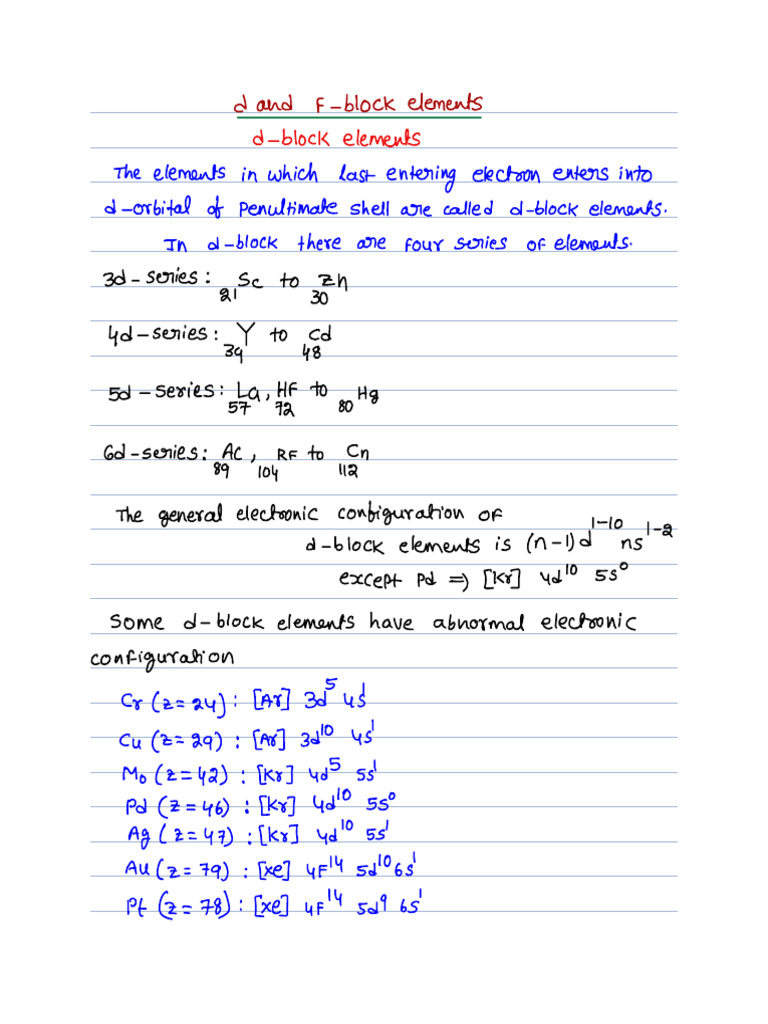 d and F-block elements
d-block elements
The elements in which last entering electron enters into
d-orbital of Penultimate shell are called d-block elements.
In d-block there are four series of elements.
3d-series: ₂₁Sc to ₃₀Zn
4d-series: ₃₉Y to ₄₈Cd
5d-series: ₅₇La, ₇₂HF to ₈₀Hg
6d-series: ₈₉Ac, ₁₀₄RF to ₁₁₂Cn
The general electronic configuration of
d-block elements is (n-1)d¹⁻¹⁰ ns¹⁻²
except Pd ⇒ [Kr] 4d¹⁰ 5s⁰
Some d-block elements have abnormal electronic
configuration
Cr (z=24): [Ar] 3d⁵ 4s¹
Cu (z=29): [Ar] 3d¹⁰ 4s¹
Mo (z=42): [Kr] 4d⁵ 5s¹
Pd (z=46): [Kr] 4d¹⁰ 5s⁰
Ag (z=47): [Kr] 4d¹⁰ 5s¹
Au (z=79): [xe] 4F¹⁴ 5d¹⁰ 6s¹
Pt (z=78): [xe] 4F¹⁴ 5d⁹ 6s¹